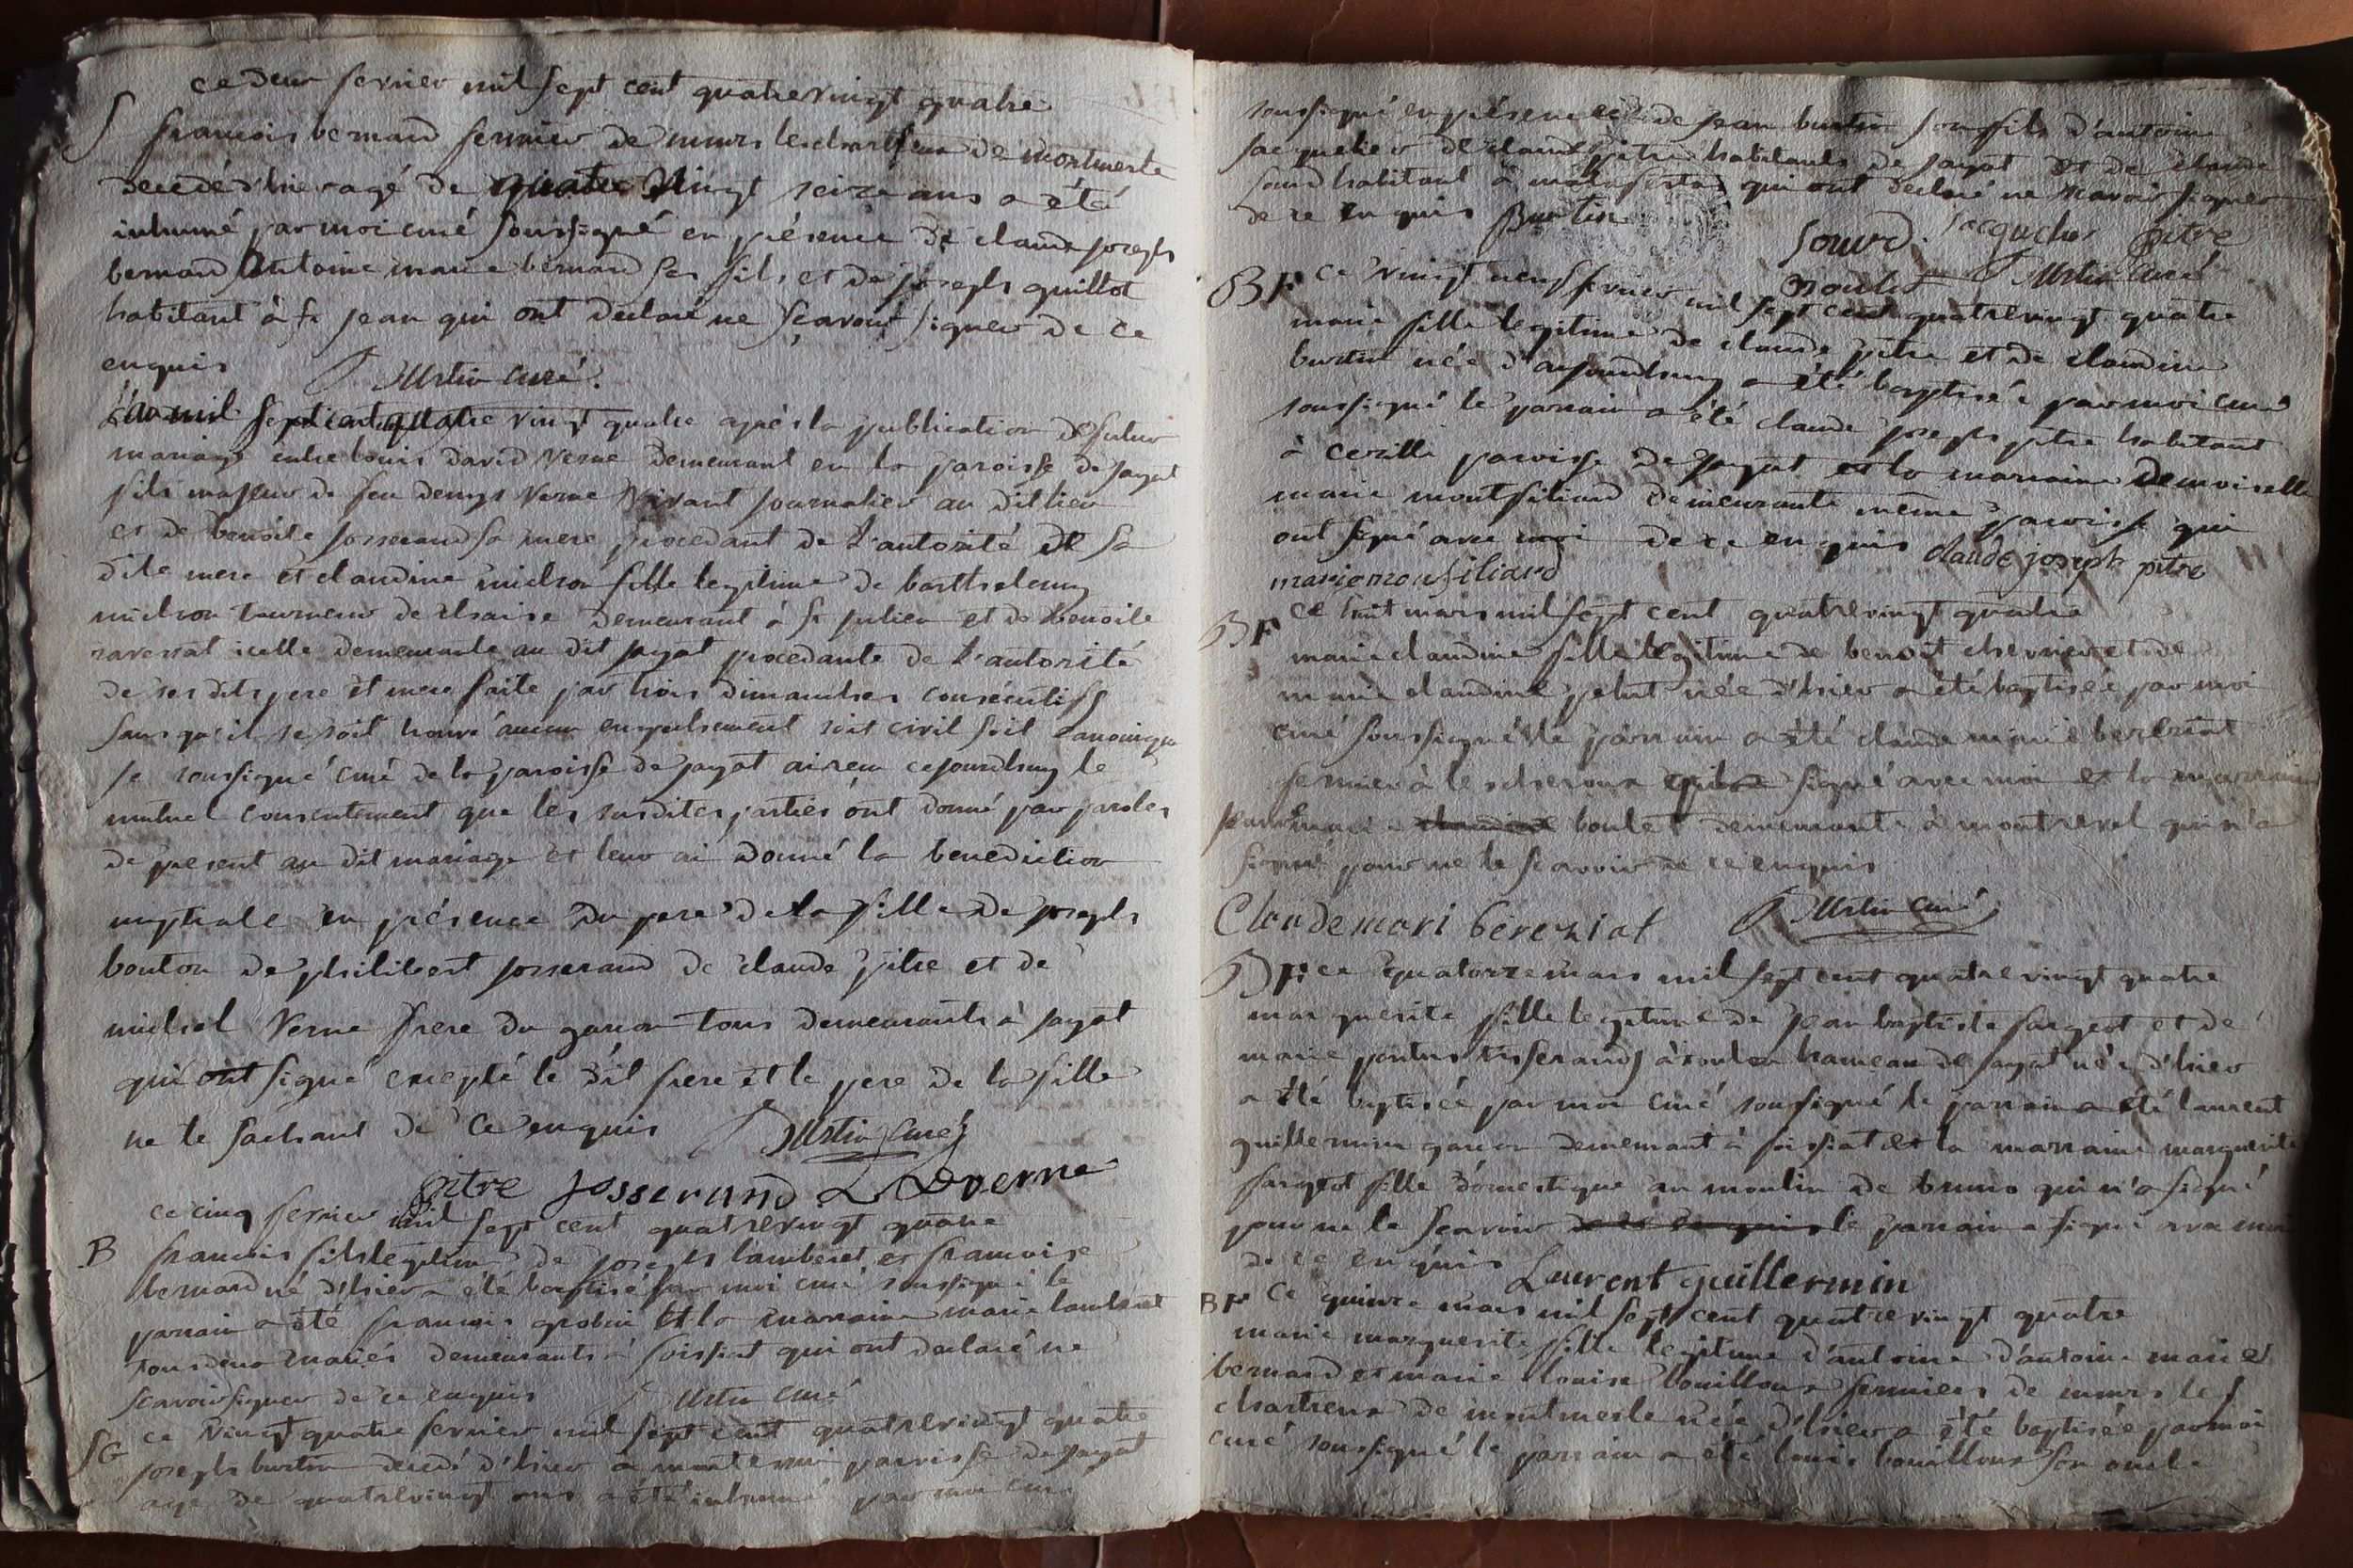 ce deux fevrier mil sept cent quatre vingt quatre
S francois bernard fermier de mm rs les chartreux de montmerle
decedé d'hier agé de quatre vingt seize ans a été
inhumé par moi curé soussigné en présence de claude joseph
bernard antoine marie bernard ses fils et de joseph guillot
habitant à st jean qui ont declaré ne sçavoir signer de ce
enquis curé
L'an mil sept cent quatre vingt quatre après la publication de futur
mariage entre louis david verne demeurant en la paroisse de jayat
fils majeur de feu denys verne vivant journalier au dit lieu
et de benoite josserand sa mere procedant de l'autorité de sa
dite mere et claudine michon fille legitime de barthelemy
michon tourneur de chaise demeurant à st julien et de benoite
ravessat icelle demeurante au dit jayat procedante de l'autorité
de ses dits pere et mere faite par trois dimanches consécutifs
sans qu'il se soit trouvé aucun empechement soit civil soit canonique
je soussigné curé de la paroisse de jayat ai reçu cejourdhuy le
mutuel consentement que les susdites parties ont donné par paroles
de present au dit mariage et leur ai donné la benediction
nuptiale en présence du pere de la fille de joseph
bouton de philibert josserand de claude pitre et de
michel verne frere du garçon tous demeurants à jayat
qui ont signé excepté le dit frere et le pere de la fille
ne le sachant de ce enquis curé
pitre josserand L D verne
ce cinq fevrier mil sept cent quatre vingt quatre
B francois fils legitime de joseph lamberet et francoise
bernard né d'hier a été baptisé par moi curé soussigné le
parrain a été francois grobon et la marraine marie lamberet
tous deux mariés demeurants à foissiat qui ont declaré ne
scavoir signer de ce enquis curé
SG ce vingt quatre fevrier mil sept cent quatre vingt quatre
joseph burtin decedé d'hier a paroisse de jayat
agé de quatre vingt ans a été inhumé par moi curé
soussigné en présence de jean burtin son fils d'antoine
jacquelier de claude pitre habitants de jayat et de claude
sourd habitant à qui ont declaré ne scavoir signer
de ce enquis Burtin sourd jacquelier pitre
curé
BF ce vingt neuf fevrier mil sept cent quatre vingt quatre
marie fille legitime de claude pitre et de claudine
burtin née d'aujourdhuy a été baptisée par moi curé
soussigné le parrain a été claude joseph pitre habitant
à cezille paroisse de jayat et la marraine demoiselle
marie montfiliard demeurante même paroisse qui
ont signé avec moi de ce enquis claude joseph pitre
marie monfiliard
BF ce huit mars mil sept cent quatre vingt quatre
marie claudine fille legitime de benoit chevrier et de
marie claudine née d'hier a été baptisée par moi
curé soussigné le parrain a été claude marie bereziat
fermier à signé avec moi et la marraine
marie boulet demeurante à montrevel qui n'a
signé pour ne le scavoir de ce enquis
Claude mari bereziat curé
BF ce quatorze mars mil sept cent quatre vingt quatre
marguerite fille legitime de jean baptiste fargeot et de
marie tisserands à hameau de jayat née d'hier
a été baptisée par moi curé soussigné le parrain a été laurent
guillermin garçon demeurant à foissiat et la marraine marguerite
fargeot fille domestique au moulin de qui n'a signé
pour ne le scavoir de ce enquis le parrain a signé avec moi
de ce enquis Laurent guillermin
BF ce quinze mars mil sept cent quatre vingt quatre
marie marguerite fille legitime d'antoine d'antoine marie
bernard et marie louise bouilloux fermiers de mm rs les
chartreux de montmerle née d'hier a été baptisée par moi
curé soussigné le parrain a été louis bouilloux son oncle